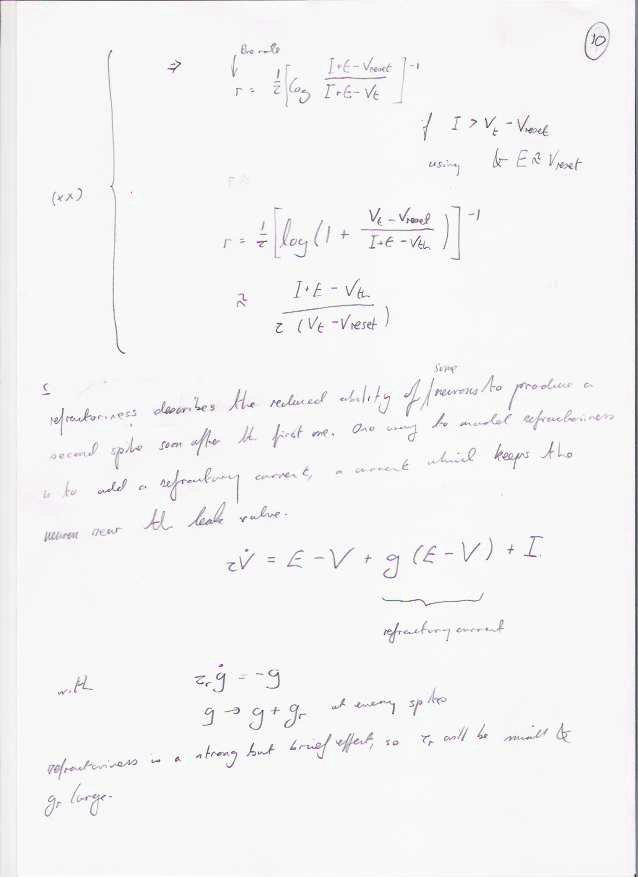 10
fire rate
⇒ r = 1/τ [log (I+E-Vreset)/(I+E-Vt)]^-1
if I > Vt - Vreset
using & E ≈ Vreset
(xx)
r = 1/τ [log(1 + (Vt - Vreset)/(I+E-Vth))]^-1
≈ (I+E-Vth)/(τ (Vt-Vreset))
some
refractoriness describes the reduced ability of neurons to produce a
second spike soon after the first one. One way to model refractoriness
is to add a refractory current, a current which keeps the
neuron near the leak value.
τV̇ = E-V + g(E-V) + I.
refractory current
with τrġ = -g
g → g+gr at every spike
refractoriness is a strong but brief effect, so τr will be small &
gr large.